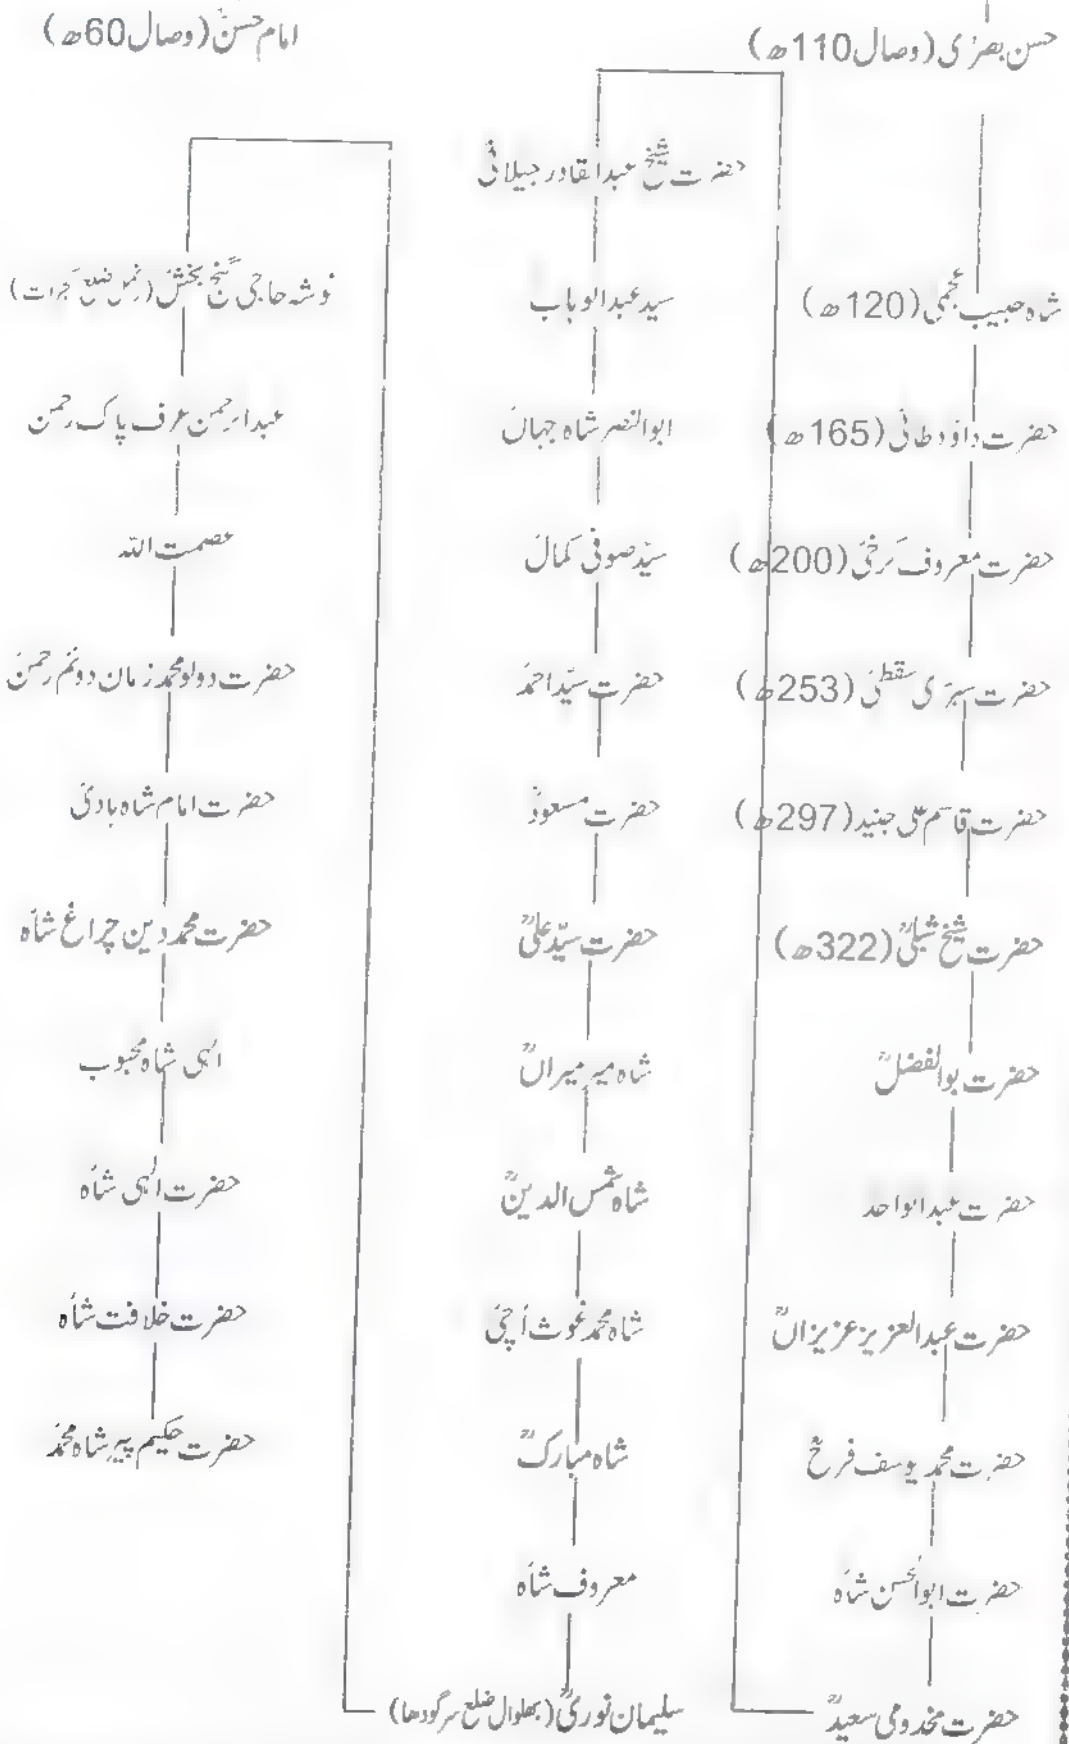 حسن بصریؒ (وصال 110ھ)
امام حسنؓ (وصال 60ھ)
شاہ حبیب عجمیؒ (120ھ)
حضرت داؤد طائیؒ (165ھ)
حضرت معروف کرخیؒ (200ھ)
حضرت سرّی سقطیؒ (253ھ)
حضرت قاسم علی جنید (297ھ)
حضرت شیخ شبلیؒ (322ھ)
حضرت بوالفضلؒ
حضرت عبدالواحد
حضرت عبدالعزیز عزیزاںؒ
حضرت محمد یوسف فرحؒ
حضرت ابوالحسن شاہؒ
حضرت مخدومی سعیدؒ
حضرت شیخ عبدالقادر جیلانیؒ
سید عبدالوہاب
ابوالنصر شاہ جہاںؒ
سیّد صوفی کمالؒ
حضرت سیّد احمدؒ
حضرت مسعودؒ
حضرت سیّد علیؒ
شاہ میر میراںؒ
شاہ شمس الدینؒ
شاہ محمد غوث اُچیؒ
شاہ مبارکؒ
معروف شاہؒ
سلیمان نوریؒ (بھلوال ضلع سرگودھا)
نوشہ حاجی گنج بخشؒ ( ضلع گجرات)
عبدالرحمن عرف پاک رحمن
عصمت اللہ
حضرت دولو محمد زمان دوئم رحمنؒ
حضرت امام شاہ ہادیؒ
حضرت محمد دین چراغ شاہؒ
الٰہی شاہ محبوب
حضرت الٰہی شاہؒ
حضرت خلافت شاہؒ
حضرت حکیم پیر شاہ محمدؒ